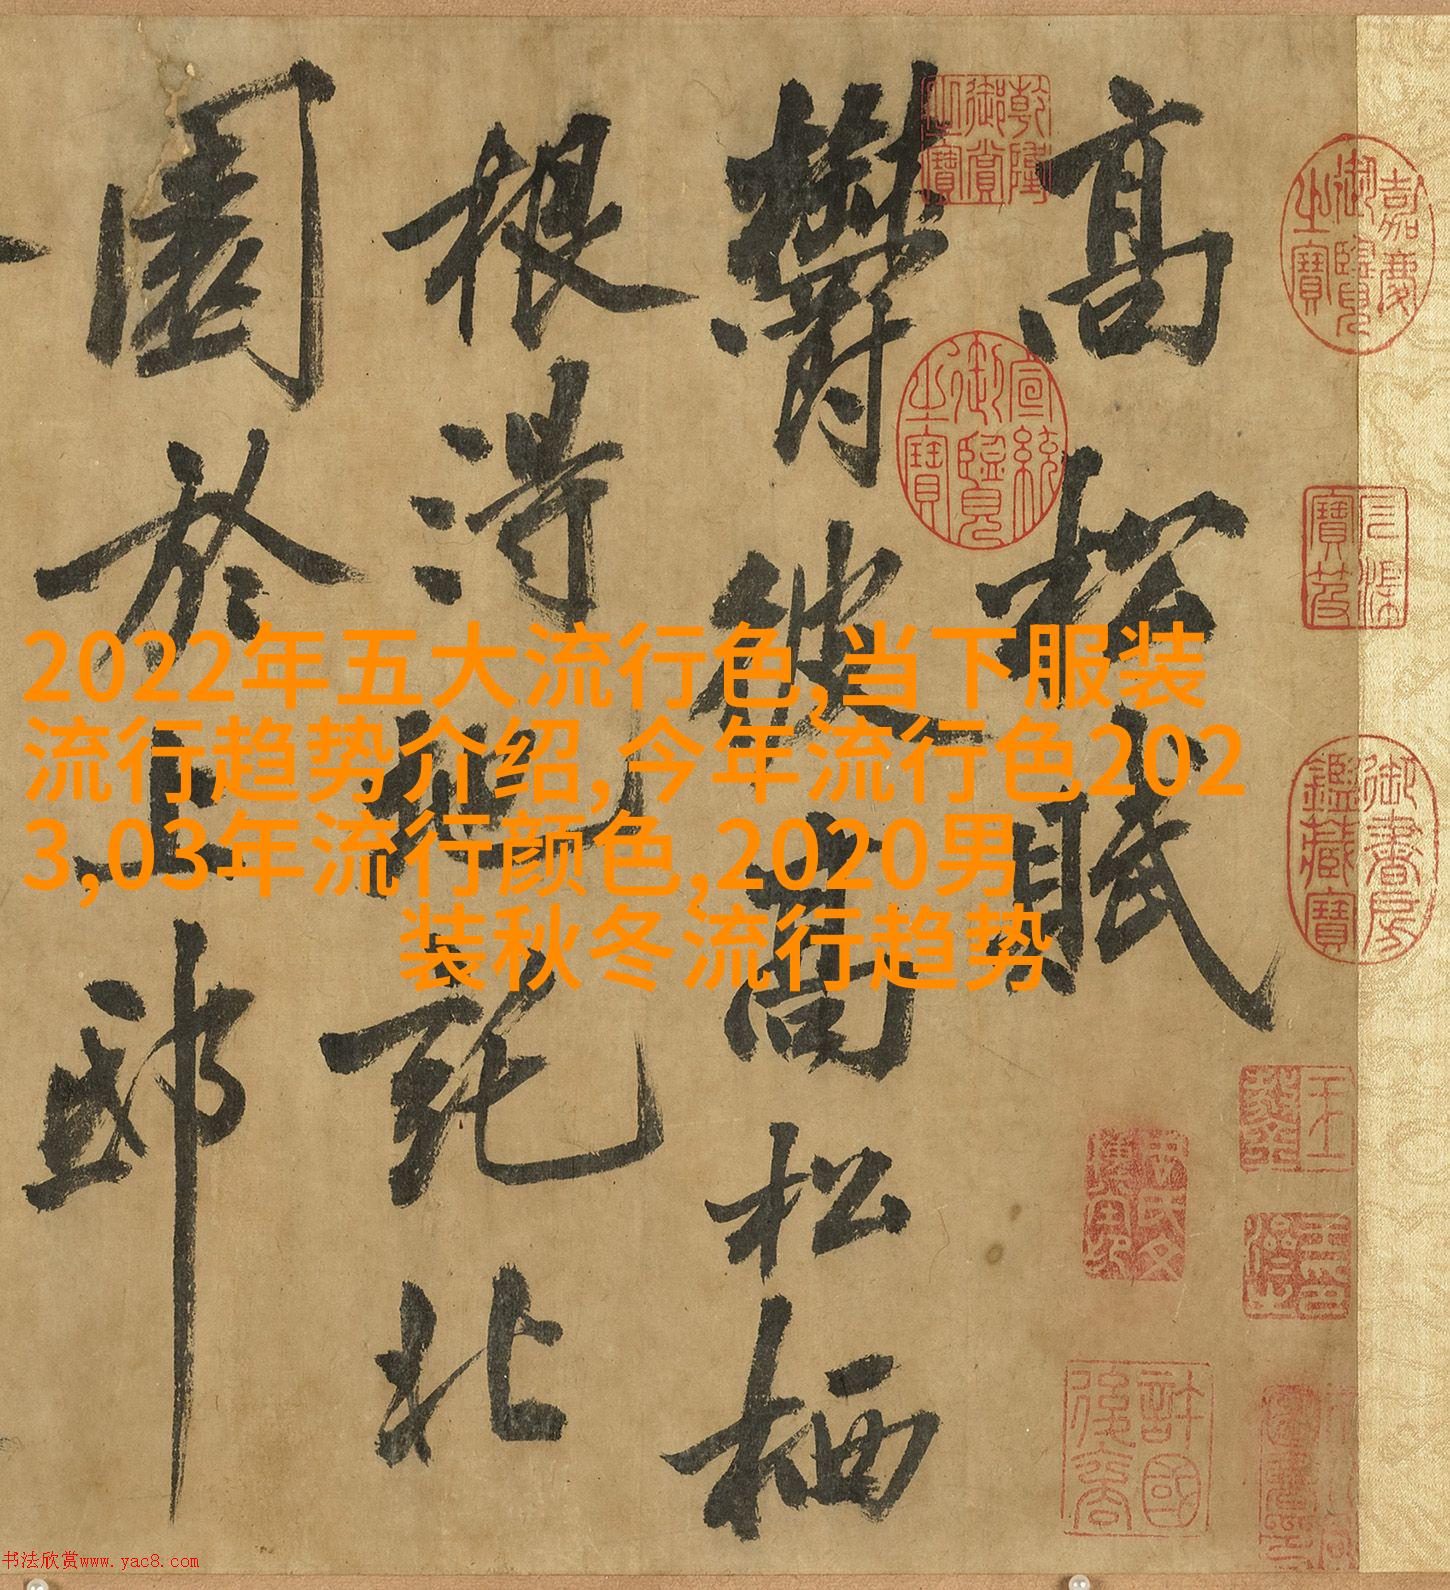 高松賦
鬱彼高松栖
根得地託北
園於上邸
嘉慶御覽之寶
乾隆御賞之寶
宣統御覽之寶
石渠寶笈
御書房鑑藏寶
許國後裔
2022年五大流行色,当下服装
流行趋势介绍,今年流行色202
3,03年流行颜色,2020男
装秋冬流行趋势
书法欣赏www.yac8.com